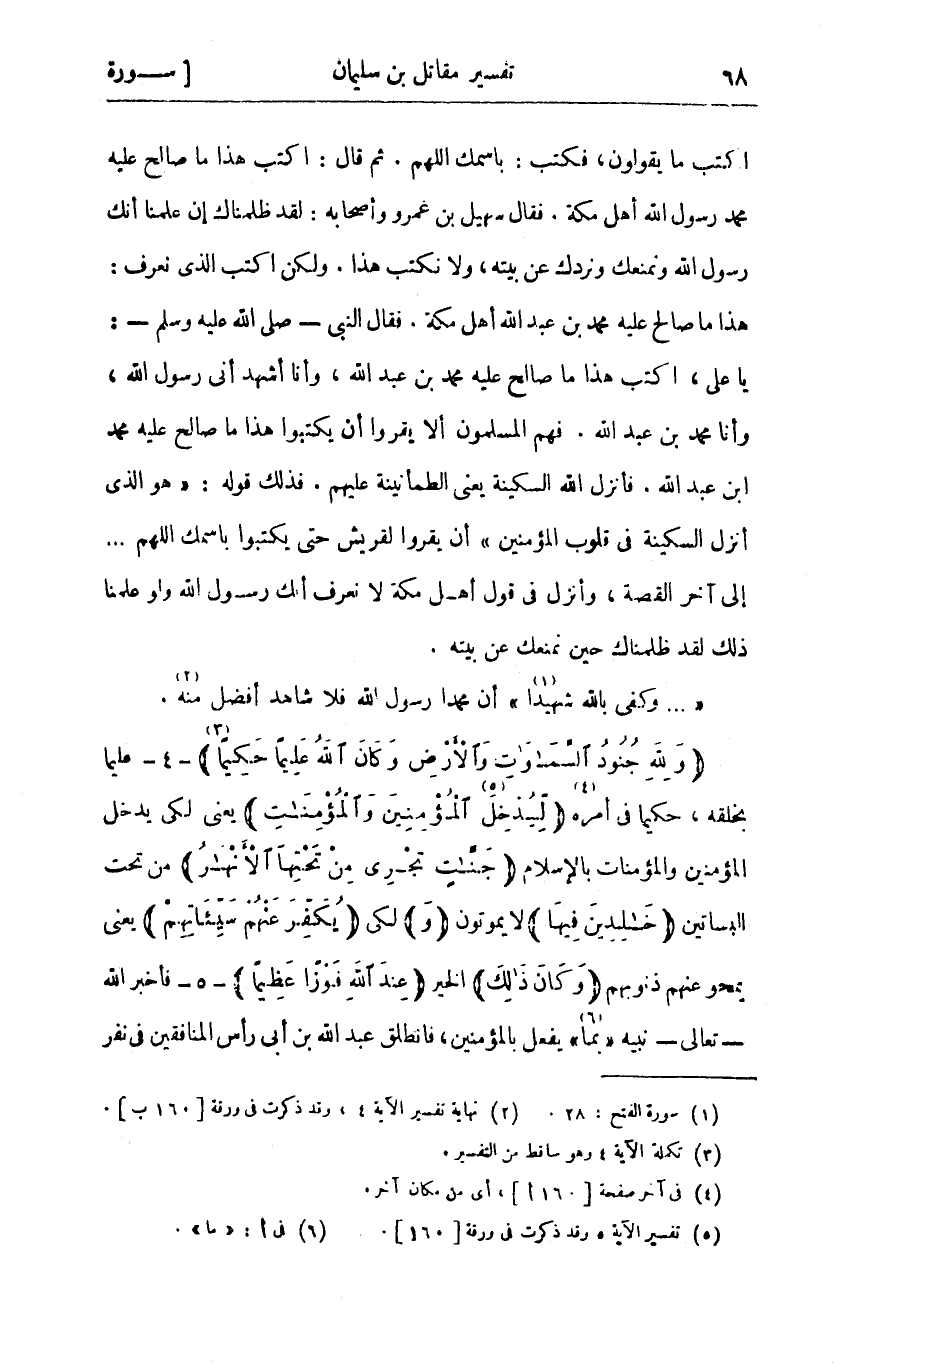 ٦٨ تفسير مقاتل بن سليمان [ ســـورة
اكتب ما يقولون، فكتب : باسمك اللهم . ثم قال : اكتب هذا ما صالح عليه
محمد رسول الله أهل مكة . فقال سهيل بن عمرو وأصحابه : لقد ظلمناك إن علمنا أنك
رسول الله ونمنعك ونردك عن بيته، ولا نكتب هذا . ولكن اكتب الذى نعرف :
هذا ما صالح عليه محمد بن عبد الله أهل مكة . فقال النبي — صلى الله عليه وسلم — :
يا على ، اكتب هذا ما صالح عليه محمد بن عبد الله ، وأنا أشهد أنى رسول الله ،
وأنا محمد بن عبد الله . فهم المسلمون ألا يقروا أن يكتبوا هذا ما صالح عليه محمد
ابن عبد الله . فأنزل الله السكينة يعنى الطمأنينة عليهم . فذلك قوله : « هو الذى
أنزل السكينة فى قلوب المؤمنين » أن يقروا لقريش حتى يكتبوا باسمك اللهم ...
إلى آخر القصة ، وأنزل فى قول أهـل مكة لا نعرف أنك رســول الله ولو علمنا
ذلك لقد ظلمناك حين نمنعك عن بيته .
« ... وكفى بالله شهيدا (١) » أن محمدا رسول الله فلا شاهد أفضل منه (٢) .
﴿ وَلِلَّهِ جُنُودُ ٱلسَّمَـٰوَٰتِ وَٱلْأَرْضِ وَكَانَ ٱللَّهُ عَلِيمًا حَكِيمًا (٣) ﴾ - ٤ - عليما
بخلقه ، حكيما فى أمره (٤) ﴿ لِّيُدْخِلَ (٥) ٱلْمُؤْمِنِينَ وَٱلْمُؤْمِنَـٰتِ ﴾ يعنى لكى يدخل
المؤمنين والمؤمنات بالإسلام ﴿ جَنَّـٰتٍ تَجْرِى مِنْ تَحْتِهَا ٱلْأَنْهَـٰرُ ﴾ من تحت
البساتين ﴿ خَـٰلِدِينَ فِيهَا ﴾ لا يموتون ﴿ وَ ﴾ لكى ﴿ يُكَفِّرَ عَنْهُمْ سَيِّئَاتِهِمْ ﴾ يعنى
يمحو عنهم ذنوبهم ﴿ وَكَانَ ذَٰلِكَ ﴾ الخير ﴿ عِندَ ٱللَّهِ فَوْزًا عَظِيمًا ﴾ - ٥ - فأخبر الله
— تعالى — نبيه « بما (٦) » يفعل بالمؤمنين، فانطلق عبد الله بن أبى رأس المنافقين فى نفر
(١) سورة الفتح : ٢٨ . (٢) نهاية تفسير الآية ٤ ، وقد ذكرت فى ورقة [ ١٦٠ ب ] .
(٣) تكملة الآية ٤ وهو ساقط من التفسير .
(٤) فى آخر صفحة [ ١٦٠ أ ] ، أى من مكان آخر .
(٥) تفسير الآية ٥ وقد ذكرت فى ورقة [ ١٦٠ ] . (٦) فى أ : « ما » .